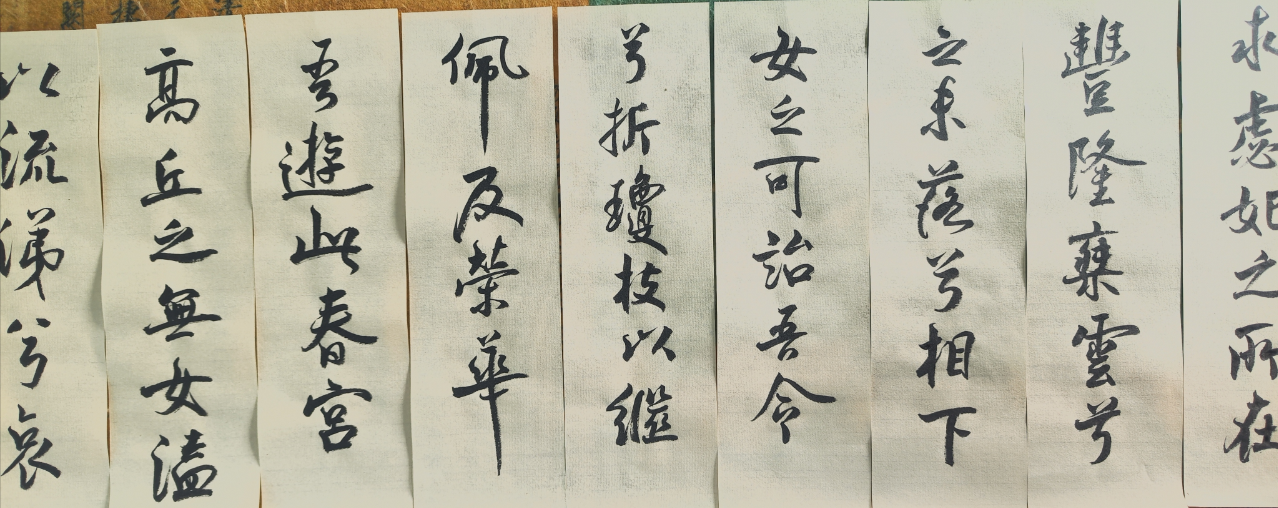 以流涕兮哀
高丘之無女溘
吾遊此春宮
佩及榮華
兮折瓊枝以繼
女之可詒吾令
之未落兮相下
豐隆椉雲兮
求虙妃之所在